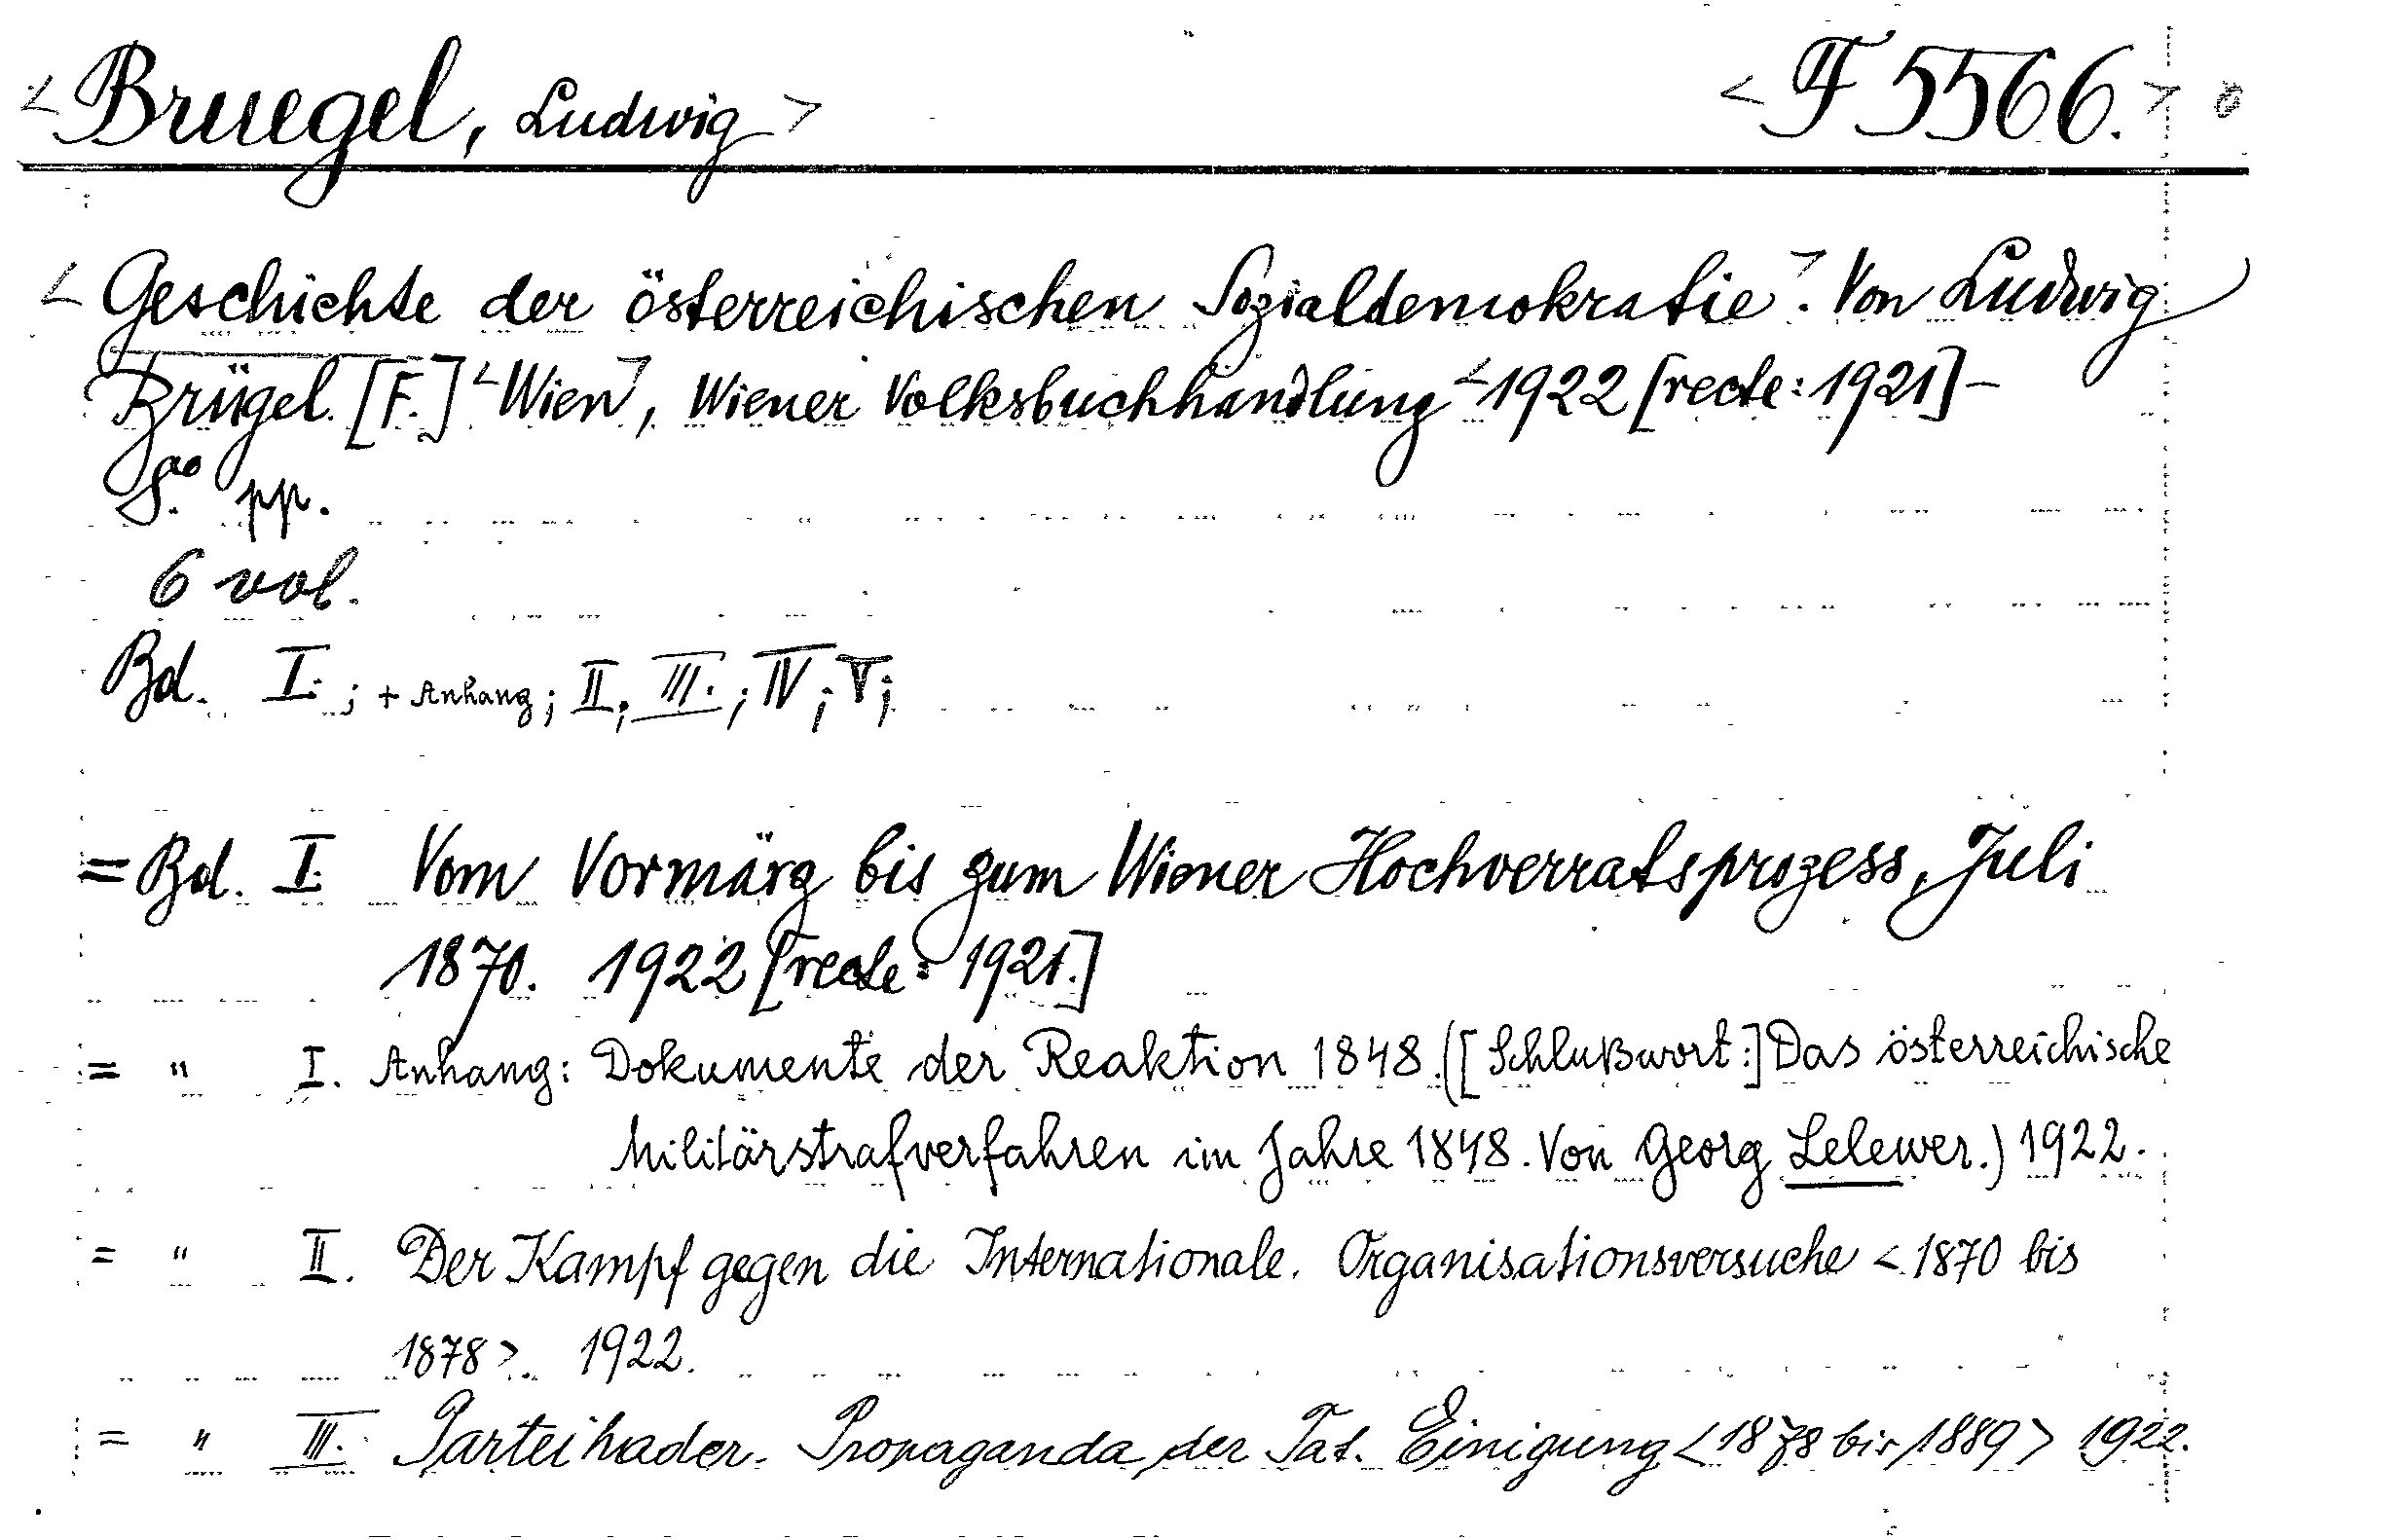 <Bruegel, Ludwig> <F 5566.>
<Geschichte der österreichischen Sozialdemokratie>. Von Ludwig
Brügel. [F.] <Wien>, Wiener Volksbuchhandlung <1922 [recte: 1921]–
8° pp.
6 vol.
Bd. I.; + Anhang; II; III.; IV; V;
= Bd. I. Vom Vormärz bis zum Wiener Hochverratsprozess, Juli
1870. 1922 [recte: 1921.]
= " I. Anhang: Dokumente der Reaktion 1848. ([Schlußwort:] Das österreichische
Militärstrafverfahren im Jahre 1848. Von Georg Lelewer.) 1922.
= " II. Der Kampf gegen die Internationale. Organisationsversuche <1870 bis
1878>. 1922.
= " III. Parteihader. Propaganda der Tat. Einigung <1878 bis 1889> 1922.